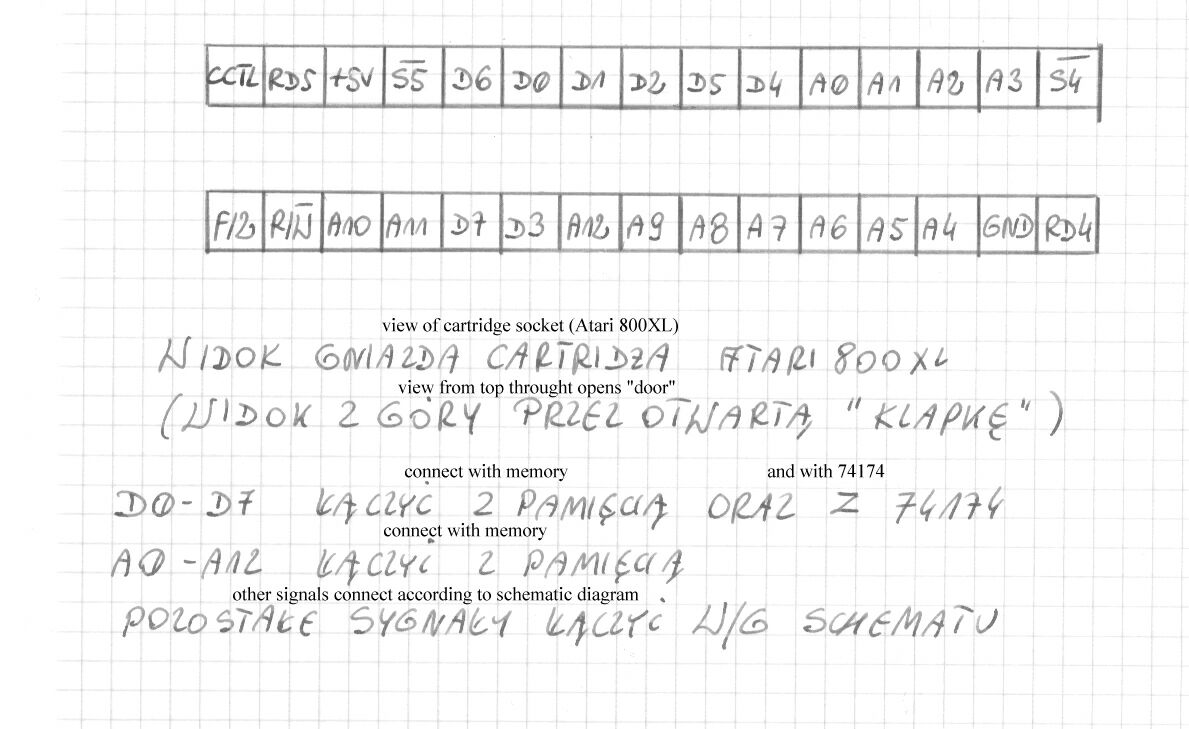 CCTL RD5 +5V S̅5̅ D6 D0 D1 D2 D5 D4 A0 A1 A2 A3 S̅4̅
F/2 R/W̅ A10 A11 D7 D3 A12 A9 A8 A7 A6 A5 A4 GND RD4
view of cartridge socket (Atari 800XL)
WIDOK GNIAZDA CARTRIDŻA ATARI 800XL
view from top throught opens "door"
(WIDOK Z GÓRY PRZEZ OTWARTĄ "KLAPKĘ")
connect with memory and with 74174
D0-D7 ŁĄCZYĆ Z PAMIĘCIĄ ORAZ Z 74174
connect with memory
A0-A12 ŁĄCZYĆ Z PAMIĘCIĄ
other signals connect according to schematic diagram
POZOSTAŁE SYGNAŁY ŁĄCZYĆ W/G SCHEMATU